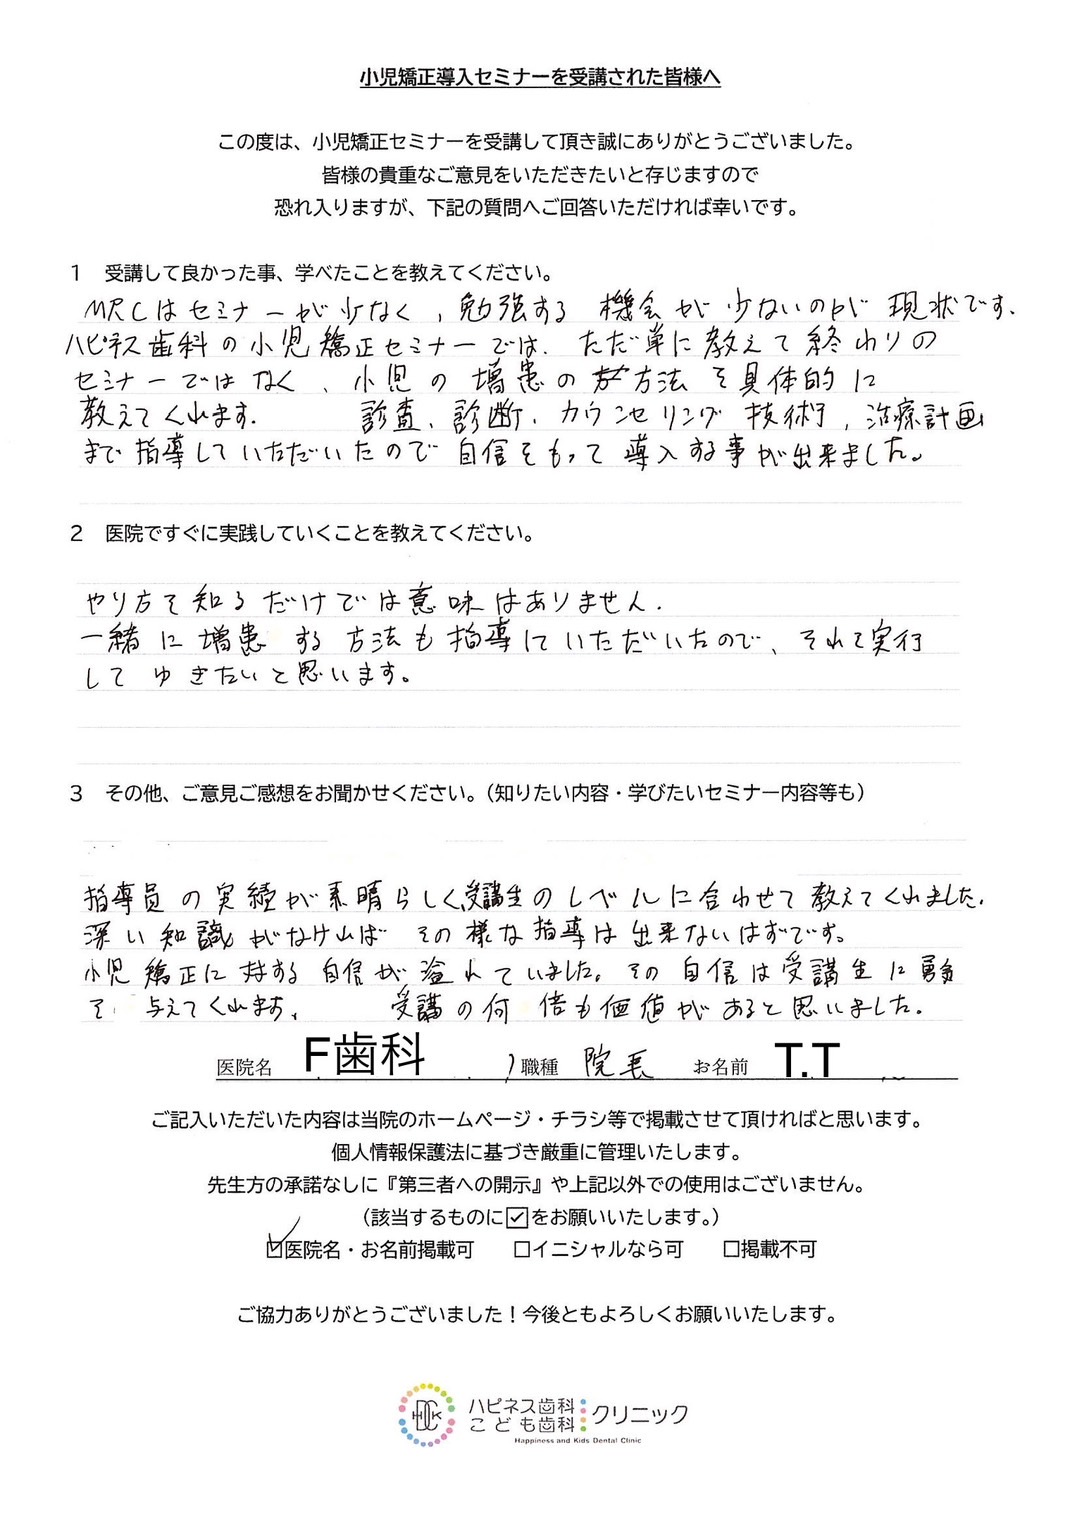 小児矯正導入セミナーを受講された皆様へ
この度は、小児矯正セミナーを受講して頂き誠にありがとうございました。
皆様の貴重なご意見をいただきたいと存じますので
恐れ入りますが、下記の質問へご回答いただければ幸いです。
1　受講して良かった事、学べたことを教えてください。
MRCはセミナーが少なく、勉強する機会が少ないのが現状です。
ハピネス歯科の小児矯正セミナーでは、ただ単に教えて終わりの
セミナーではなく、小児の増患の方法を具体的に
教えてくれます。　診査、診断、カウンセリング技術、治療計画
まで指導していただいたので自信をもって導入する事が出来ました。
2　医院ですぐに実践していくことを教えてください。
やり方を知るだけでは意味はありません。
一緒に増患する方法も指導していただいたので、それを実行
してゆきたいと思います。
3　その他、ご意見ご感想をお聞かせください。（知りたい内容・学びたいセミナー内容等も）
指導員の実績が素晴らしく、受講生のレベルに合わせて教えてくれました。
深い知識がなければその様な指導は出来ないはずです。
小児矯正に対する自信が溢れていました。その自信は受講生に勇気
を与えてくれます。　受講の何倍も価値があると思いました。
医院名　F歯科　職種　院長　お名前　T.T
ご記入いただいた内容は当院のホームページ・チラシ等で掲載させて頂ければと思います。
個人情報保護法に基づき厳重に管理いたします。
先生方の承諾なしに『第三者への開示』や上記以外での使用はございません。
（該当するものに☑をお願いいたします。）
☑医院名・お名前掲載可　□イニシャルなら可　□掲載不可
ご協力ありがとうございました！今後ともよろしくお願いいたします。
HDCK
ハピネス歯科
こども歯科
クリニック
Happiness and Kids Dental Clinic